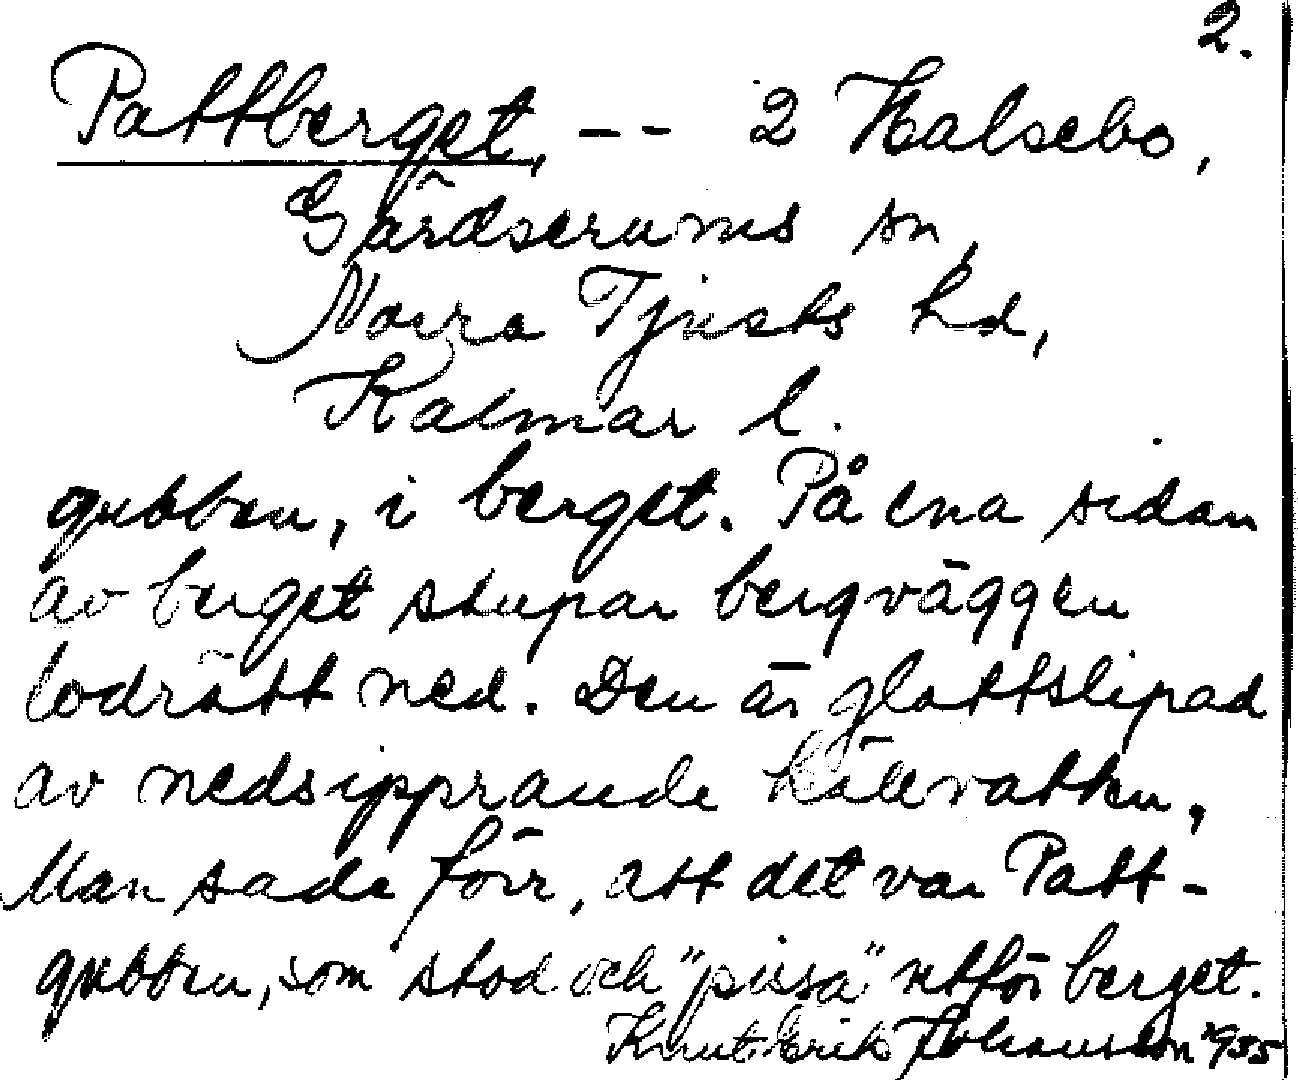 2.
Pattberget, -- 2 Halsebo,
Gärdserums sn,
Norra Tjusts hd,
Kalmar l.
gubben, i berget. På ena sidan
av berget stupar bergväggen
lodrätt ned. Den är glattslipad
av nedsipprande källvatten,
Man sade förr, att det var Patt-
gubben, som stod och "pissa" utför berget.
Knut Erik Johansson 1955